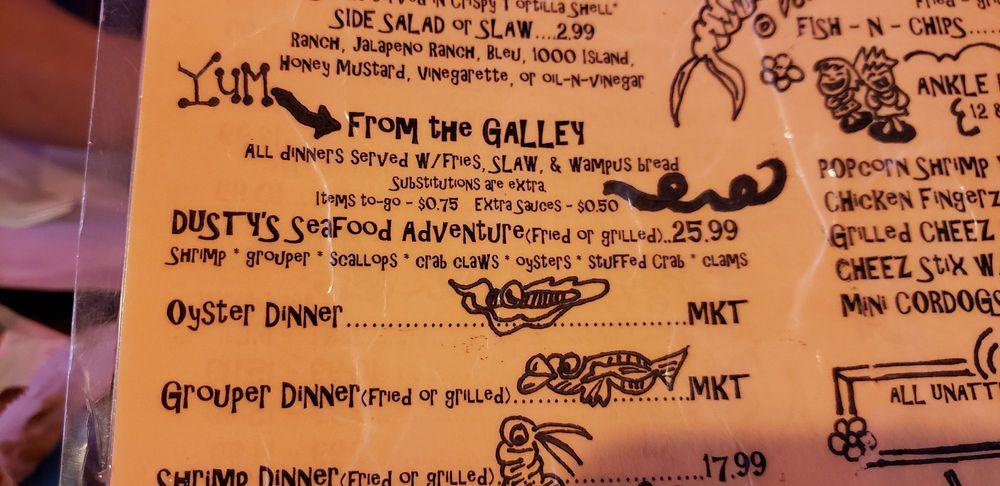 Served in Crispy Tortilla Shell*
SIDE SALAD or SLAW....2.99
Ranch, Jalapeno Ranch, Bleu, 1000 Island,
Honey Mustard, Vinegarette, or oil-n-vinegar
Yum
From the GALLEY
ALL dinners Served w/Fries, SLAW, & Wampus bread
Substitutions are extra
Items to-go - $0.75 Extra Sauces - $0.50
DUSTY'S Seafood Adventure(Fried or grilled)..25.99
Shrimp * grouper * scallops * crab claws * oysters * stuffed Crab * clams
Oyster Dinner MKT
Grouper Dinner(Fried or grilled) MKT
Shrimp Dinner(Fried or grilled) 17.99
FISH - N - CHIPS.....
ANKLE
12
POPCORN SHRIMP
CHICKEN FINGERZ
GRILLED CHEEZ
CHEEZ STIX W
MINI CORDOGS
ALL UNATT